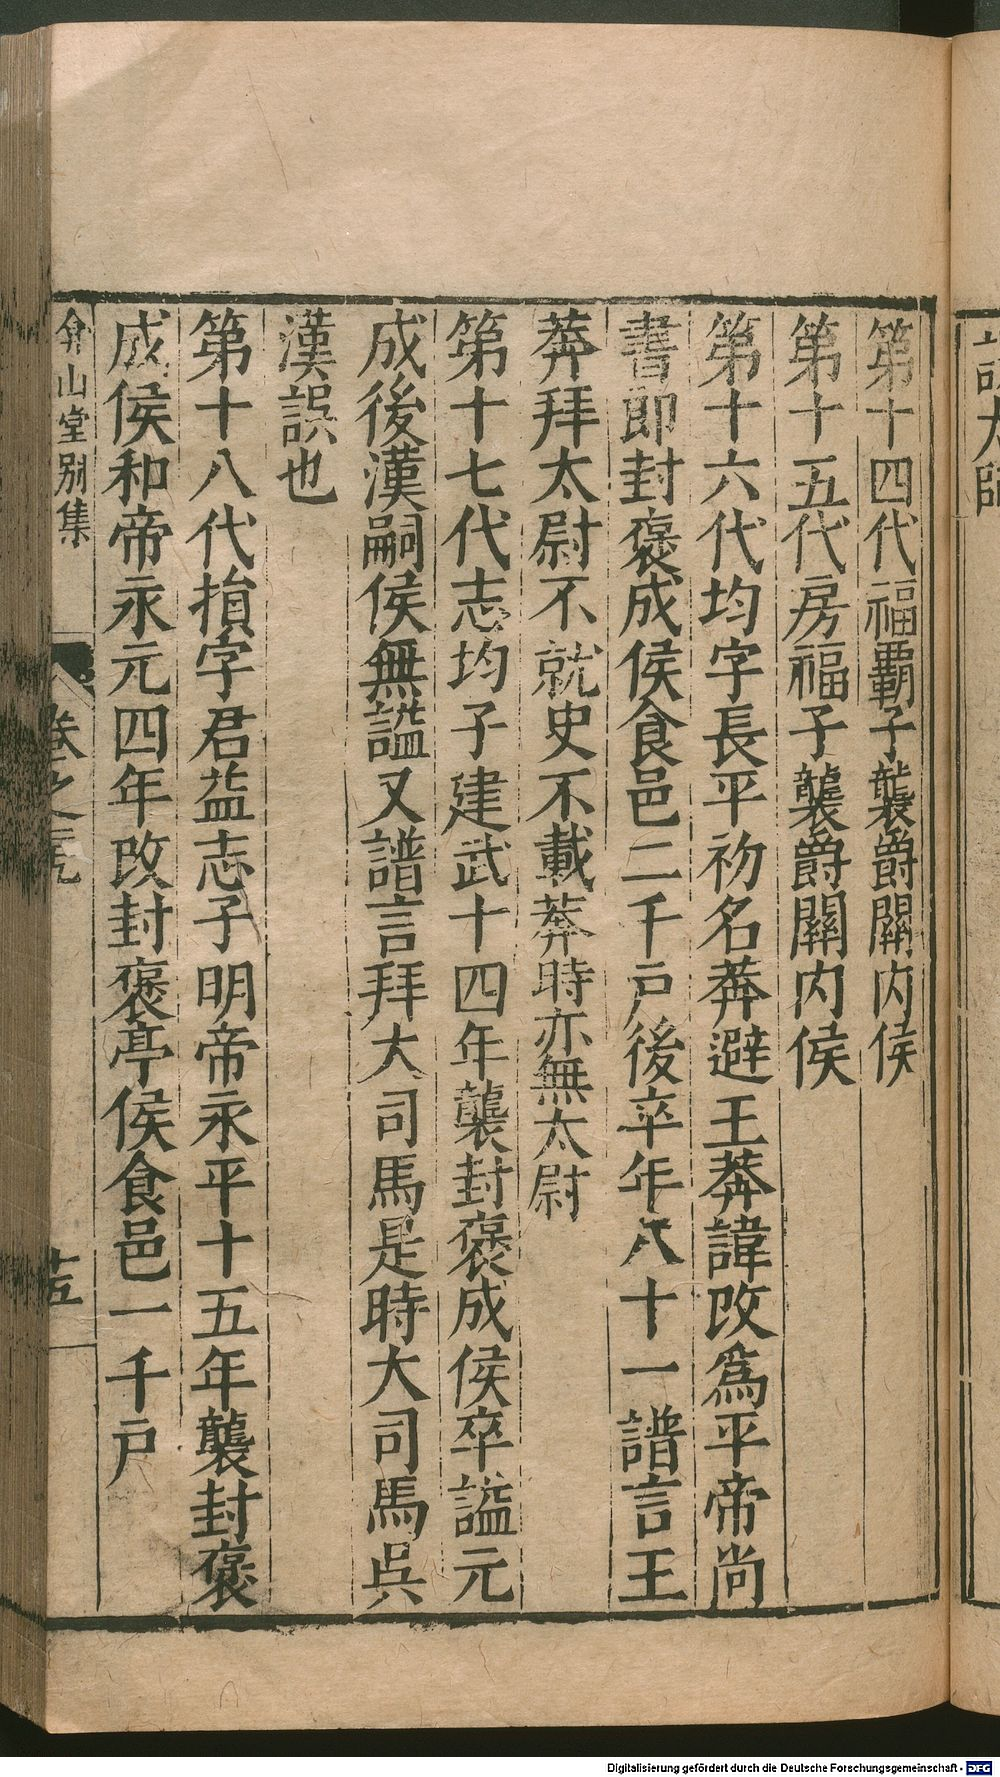 第十四代福霸子襲爵關内侯
第十五代房福子襲爵關内侯
第十六代均字長平初名莽避王莽諱改爲平帝尚
書郎封襃成侯食邑二千戸後卒年八十一譜言王
莽拜太尉不就史不載莽時亦無太尉
第十七代志均子建武十四年襲封襃成侯卒謚元
成後漢嗣侯無謚又譜言拜大司馬是時大司馬吳
漢誤也
第十八代損字君益志子明帝永平十五年襲封襃
成侯和帝永元四年改封襃亭侯食邑一千戸
弇山堂别集
卷之
十五
太師
Digitalisierung gefördert durch die Deutsche Forschungsgemeinschaft - DFG